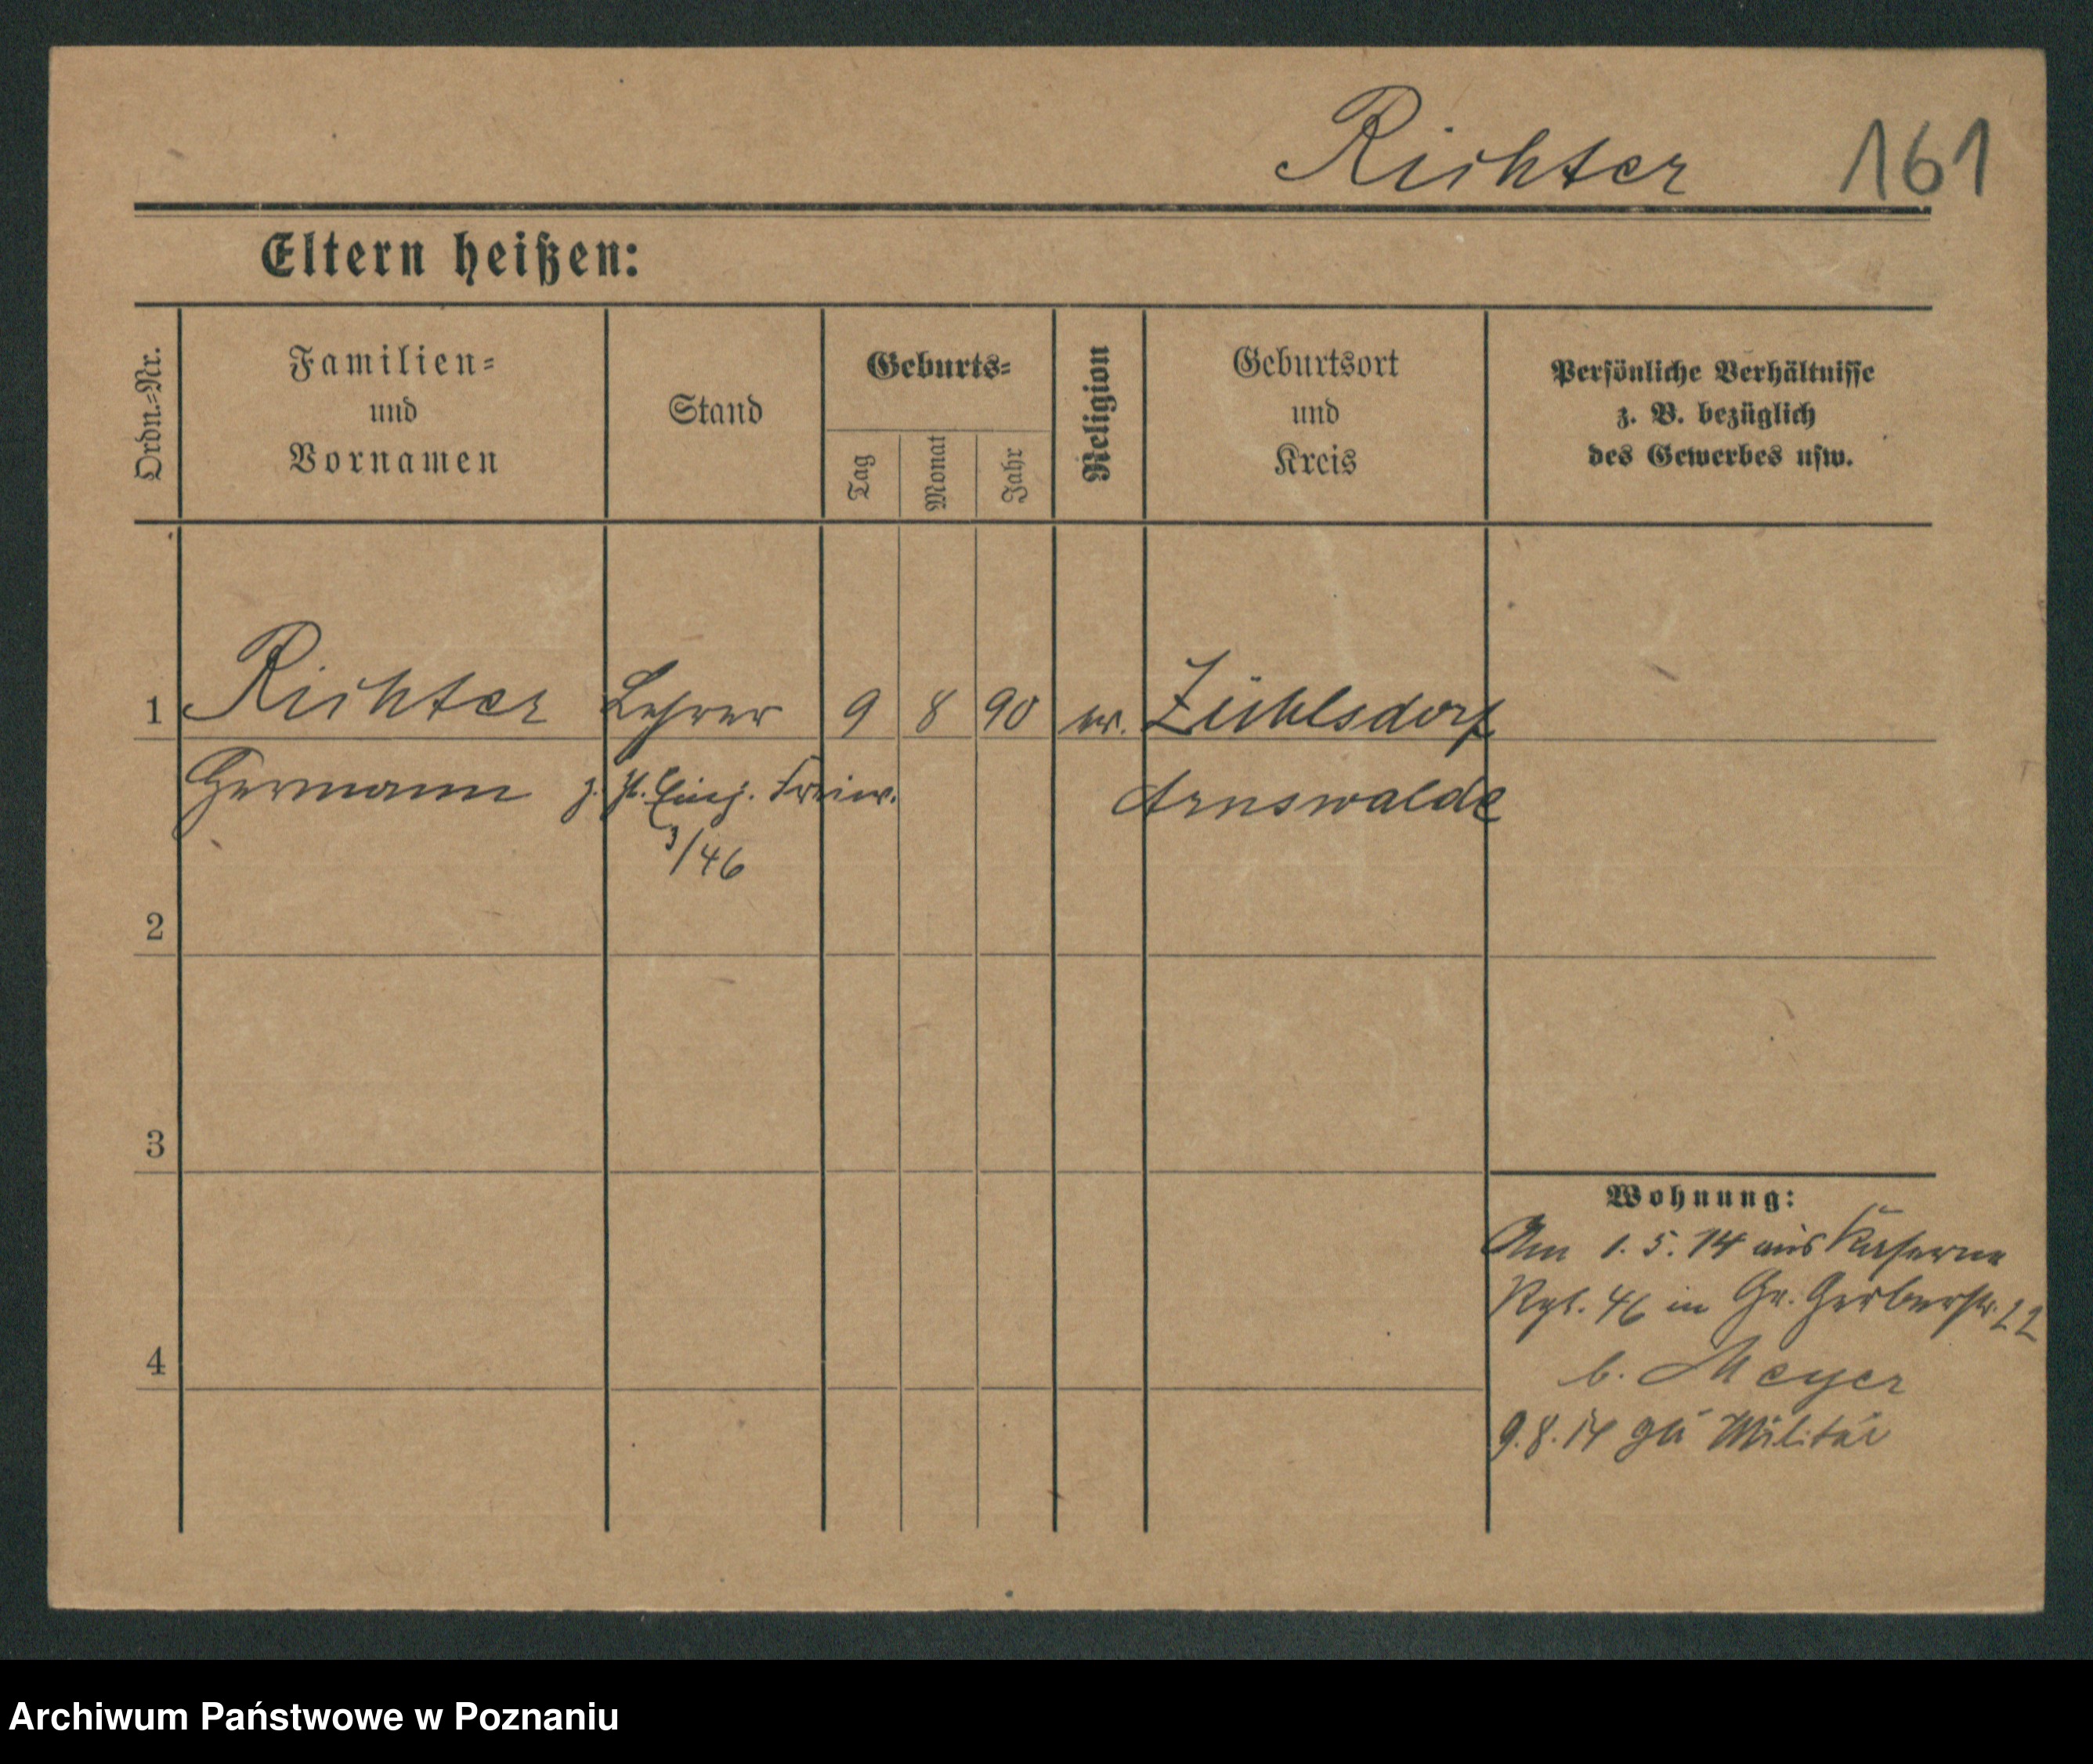 Richter 161
Eltern heißen:
Ordn.-Nr.
Familien-
und
Vornamen
Stand
Geburts-
Tag
Monat
Jahr
Religion
Geburtsort
und
Kreis
Persönliche Verhältnisse
z. B. bezüglich
des Gewerbes usw.
1 Richter Lehrer 9 8 90 ev. Zühlsdorf
Hermann z. Zt. Einj. Freiw. Arnswalde
3/46
2
3
4
Wohnung:
Am 1. 5. 14 aus Kaserne
Rgt. 46 in Gr. Gerberstr. 22
b. Meyer
9.8.14 zu Militär
Archiwum Państwowe w Poznaniu